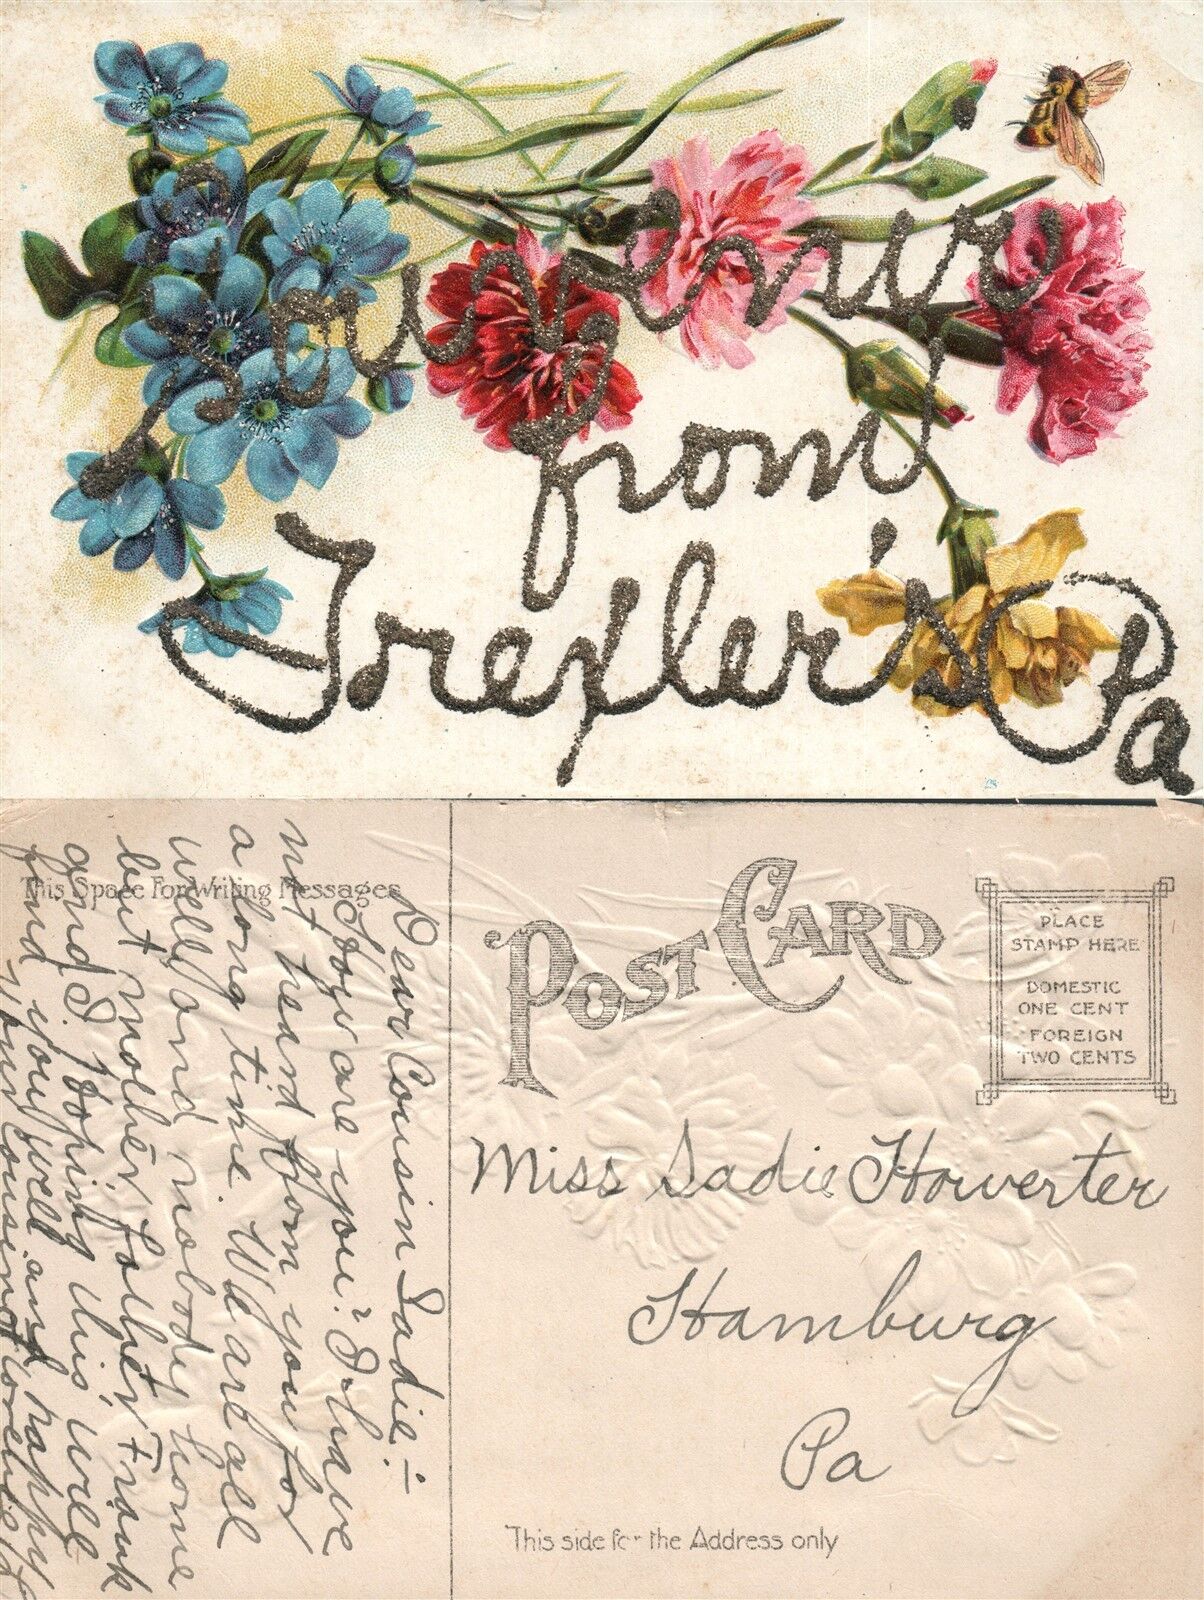 Souvenir
from
Trexler's Pa
This Space For Writing Messages
Dear Cousin Sadie:-
How are you? I have
not heard from you for
a long time. We are all
well and nobody home
but mother, father + Frank
and I. Hoping this will
find you well and happy
Your Cousin
POST CARD
PLACE
STAMP HERE
DOMESTIC
ONE CENT
FOREIGN
TWO CENTS
Miss Sadie Howerter
Hamburg
Pa
This side for the Address only